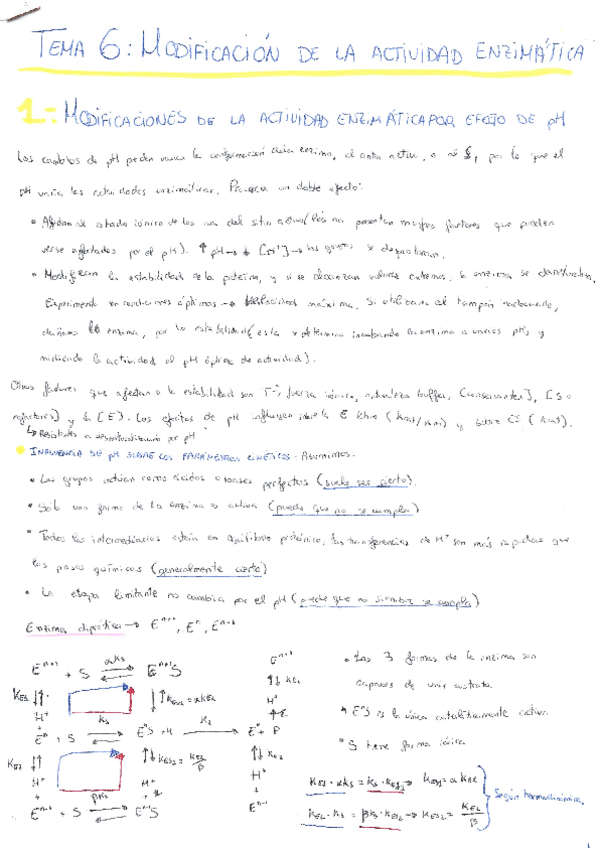 TEMA 6: MODIFICACIÓN DE LA ACTIVIDAD ENZIMÁTICA
1.- MODIFICACIONES DE LA ACTIVIDAD ENZIMÁTICA POR EFECTO DE pH
Los cambios de pH pueden variar la conformación de la enzima, el centro activo, o el S, por lo que el
pH varía las actividades enzimáticas. Provoca un doble efecto:
• Afectan al estado iónico de los del sitio activo (los presentan muchos factores que pueden
verse afectados por el pH). ↑ pH → ↓ [H⁺] → los grupos se desprotonan.
• Modifican la estabilidad de la proteína, y si se alcanzan valores extremos, la enzima se desnaturaliza.
Experimento en condiciones óptimas → velocidad máxima. Si utilizam el tampón inadecuado,
dañamos la enzima, por la estabilidad (esta se determina incubando la enzima a varios pHs y
midiendo la actividad al pH óptimo de actividad).
Otros factores que afectan a la estabilidad son Tª, fuerza iónica, naturaleza buffer, [conservantes], [S o
] y la [E]. Los efectos de pH influyen sobre la E libre (kcat/km) y sobre ES (kcat).
↳ Resistentes a desnaturalización por pH
• INFLUENCIA DE pH SOBRE LOS PARÁMETROS CINÉTICOS. Asumimos:
• Los grupos actúan como ácidos o bases perfectos (suele ser cierto).
• Solo una forma de la enzima es activa (puede que no se cumpla)
• Todos los intermediarios están en equilibrio protónico, las transferencias de H⁺ son más rápidas que
los pasos químicos (generalmente cierto)
• La etapa limitante no cambia por el pH (puede que no siempre se cumpla)
Enzima diprótica → Eⁿ⁺¹, Eⁿ, Eⁿ⁻¹
Eⁿ⁺¹ + S ⇌ Eⁿ⁺¹S
αKs
KE1 ↑↓
↑↓ KES1 = αKE1
H⁺
Ks
K2
Eⁿ + S ⇌ EⁿS + H → Eⁿ + P
KE2 ↑↓
↑↓ KES2 = KE2/β
↑↓ KE2
H⁺
H⁺
H⁺
+
+
+
βKs
Eⁿ⁻¹ + S ⇌ Eⁿ⁻¹S
Eⁿ⁻¹
Eⁿ⁺¹
↑↓ KE1
H⁺
• Las 3 formas de la enzima son
capaces de unir sustrato.
• EⁿS es la única catalíticamente activa.
• S tiene forma iónica
KE1 · αKs = Ks · KES1 → KES1 = α KE1
KE2 · Ks = βKs · KES2 → KES2 = KE2/β
Según termodinámica.